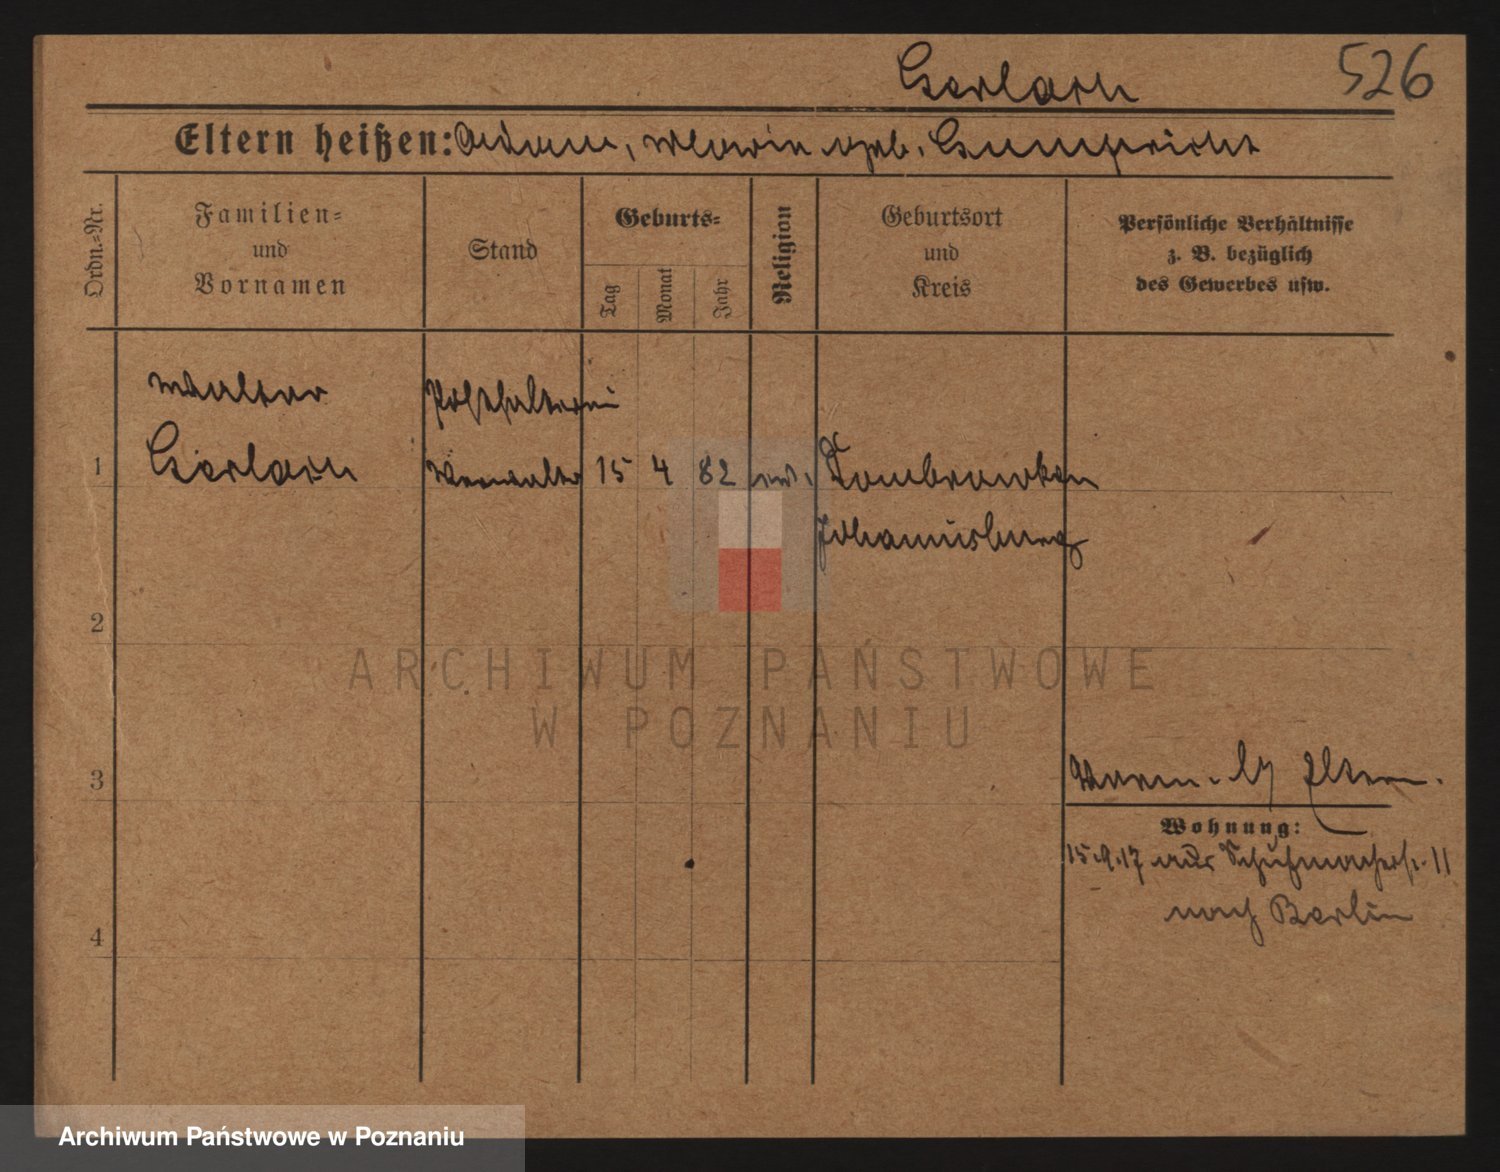 Gerlach
526
Eltern heißen: Adam, Marie geb. Gumpricht
Ordn.=Nr.
Familien=
und
Vornamen
Stand
Geburts=
Tag
Monat
Jahr
Religion
Geburtsort
und
Kreis
Persönliche Verhältnisse
z. B. bezüglich
des Gewerbes usw.
Walter Posthalterei
1 Gerlach Verwalter 15 4 82 ev. Dombrowken
Johannisburg
2
ARCHIWUM PAŃSTWOWE
W POZNANIU
3
Eltern.
Wohnung:
15.9.17 aus Schuhmacherstr. 11
nach Berlin
4
Archiwum Państwowe w Poznaniu